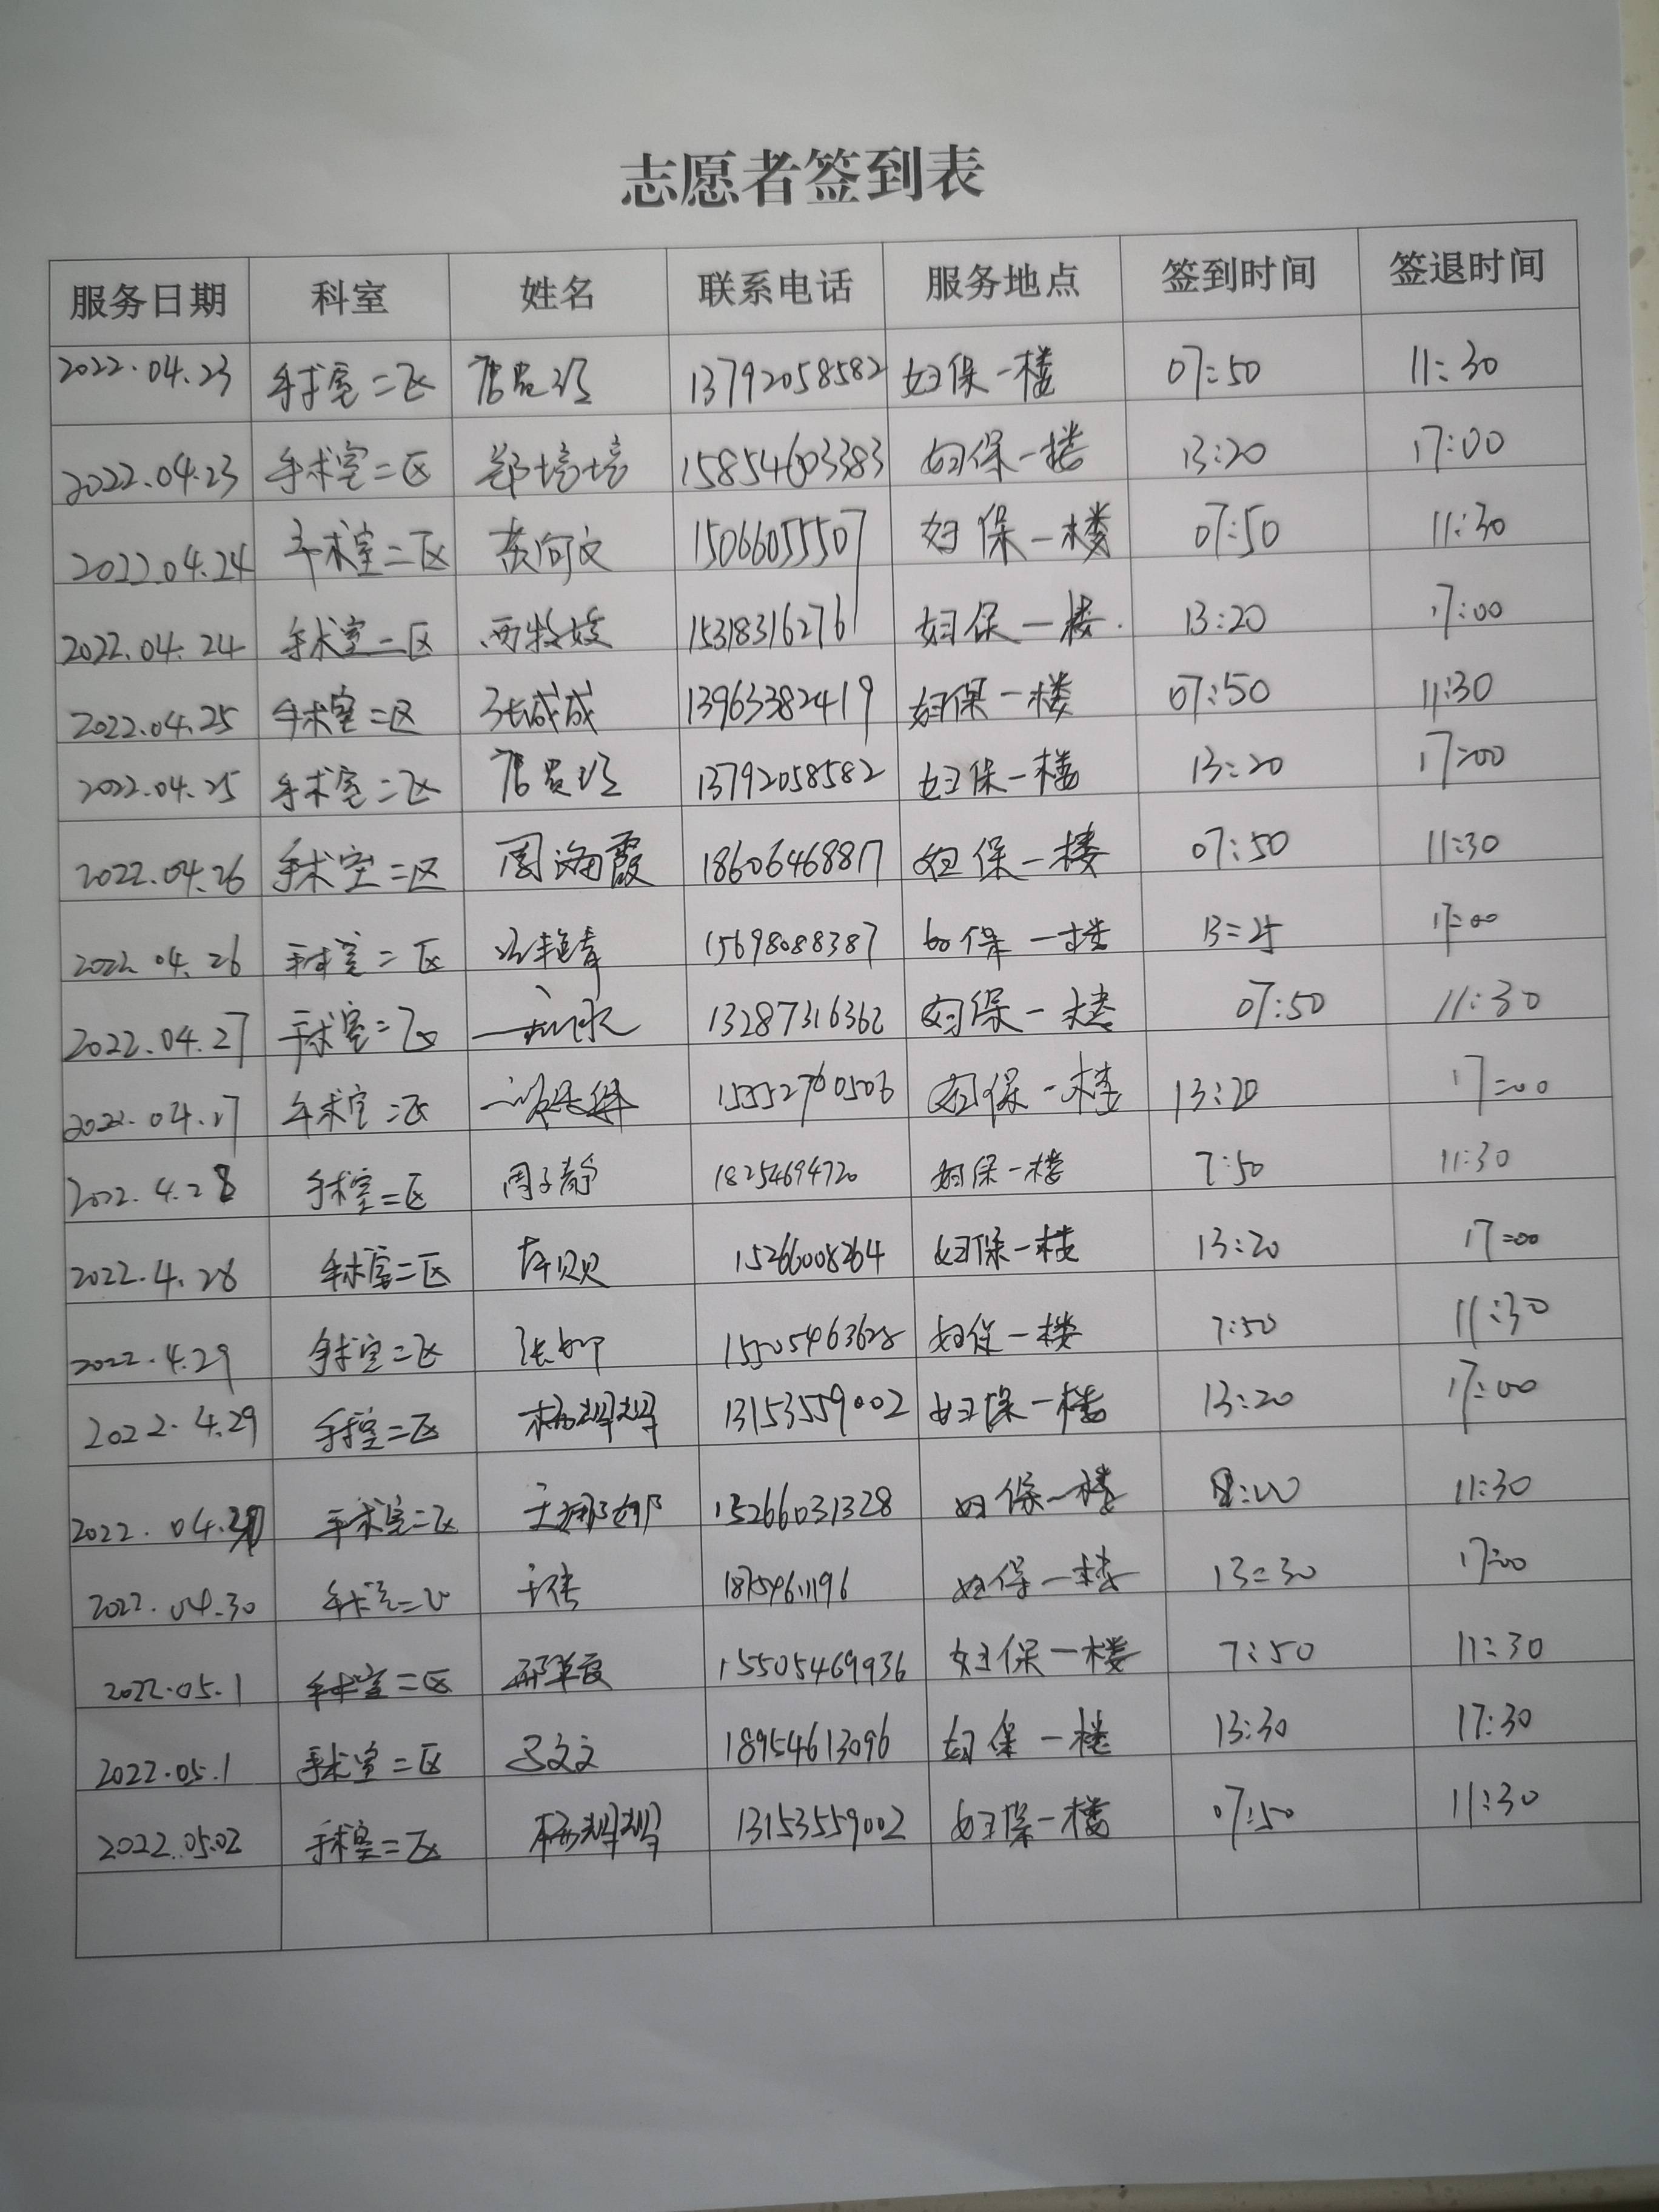 志愿者签到表
服务日期 科室 姓名 联系电话 服务地点 签到时间 签退时间
2022.04.23 手术室二区 13792058582 妇保一楼 07:50 11:30
2022.04.23 手术室二区 郑培培 15854603383 妇保一楼 13:20 17:00
2022.04.24 手术室二区 黄向文 15066055507 妇保一楼 07:50 11:30
2022.04.24 手术室二区 15318316276 妇保一楼. 13:20 17:00
2022.04.25 手术室二区 张成成 13963382419 妇保一楼 07:50 11:30
2022.04.25 手术室二区 13792058582 妇保一楼 13:20 17:00
2022.04.26 手术室二区 周海霞 18606468817 妇保一楼 07:50 11:30
2022.04.26 手术室二区 15698088387 妇保一楼 13:25 17:00
2022.04.27 手术室二区 13287316362 妇保一楼 07:50 11:30
2022.04.27 手术室二区 15552760506 妇保一楼 13:20 17:00
2022.4.28 手术室二区 周子静 18254694720 妇保一楼 7:50 11:30
2022.4.28 手术室二区 15266008264 妇保一楼 13:20 17:00
2022.4.29 手术室二区 15505463628 妇保一楼 7:50 11:30
2022.4.29 手术室二区 杨翠翠 13153559002 妇保一楼 13:20 17:00
手术室二区 王娜娜 15266031328 妇保一楼 8:00 11:30
2022.04.30 手术室二区 18754611196 妇保一楼 13:30 17:00
2022.05.1 手术室二区 15505469936 妇保一楼 7:50 11:30
2022.05.1 手术室二区 18954613096 妇保一楼 13:30 17:30
2022.05.02 手术室二区 杨翠翠 13153559002 妇保一楼 07:50 11:30